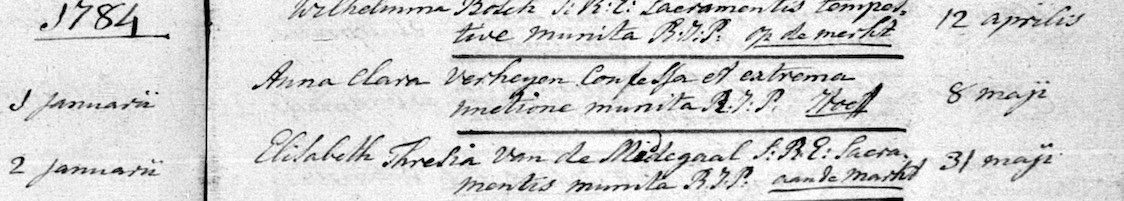 1784
Wilhelmina Bolck S: R: E: Sacramentis tempes-
tive munita R: I: P: op de merkt
12 aprilis
Anna Clara Verheyen Confessa et extrema
1 Januarii
unctione munita R: I: P.
8 maji
Elisabeth Thresia Van de Middegaal S: R: E: Sacra-
2 Januarii
mentis munita R: I: P: aan de Markt
31 maji